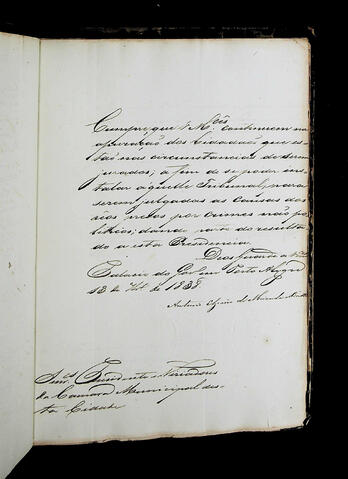 Cumpre que V M.cês continuem na
apuração dos Cidadãos que es-
tão nas circunstancias de serem
jurados; a fim de se poder ins-
talar aquelle Tribunal, para
serem julgadas as causas dos
réos prezos por crimes não po-
liticos; dando parte do resulta-
do a esta Presidencia.
Deos Guarde a V M.cês
Palacio do Gov.º em Porto Alegre
13 de de 1838
Antonio
Snr.es Presidente e Vereadores
da Camara Municipal des-
ta Cidade